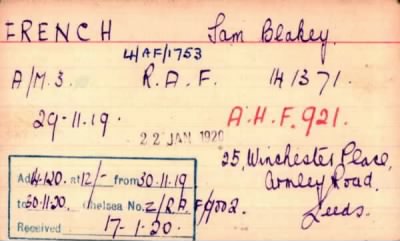 FRENCH Sam Blakey.
4/AF/1753
A/M.3. R.A.F. 141371.
29-11-19. A.H.F. 921.
22 JAN 1920
25, Winchester Place,
Armley Road,
Leeds.
at 12/- from 30.11.19
to 30-11-20. Chelsea No. 2/R.A.F/4002.
Received 17-1-20.